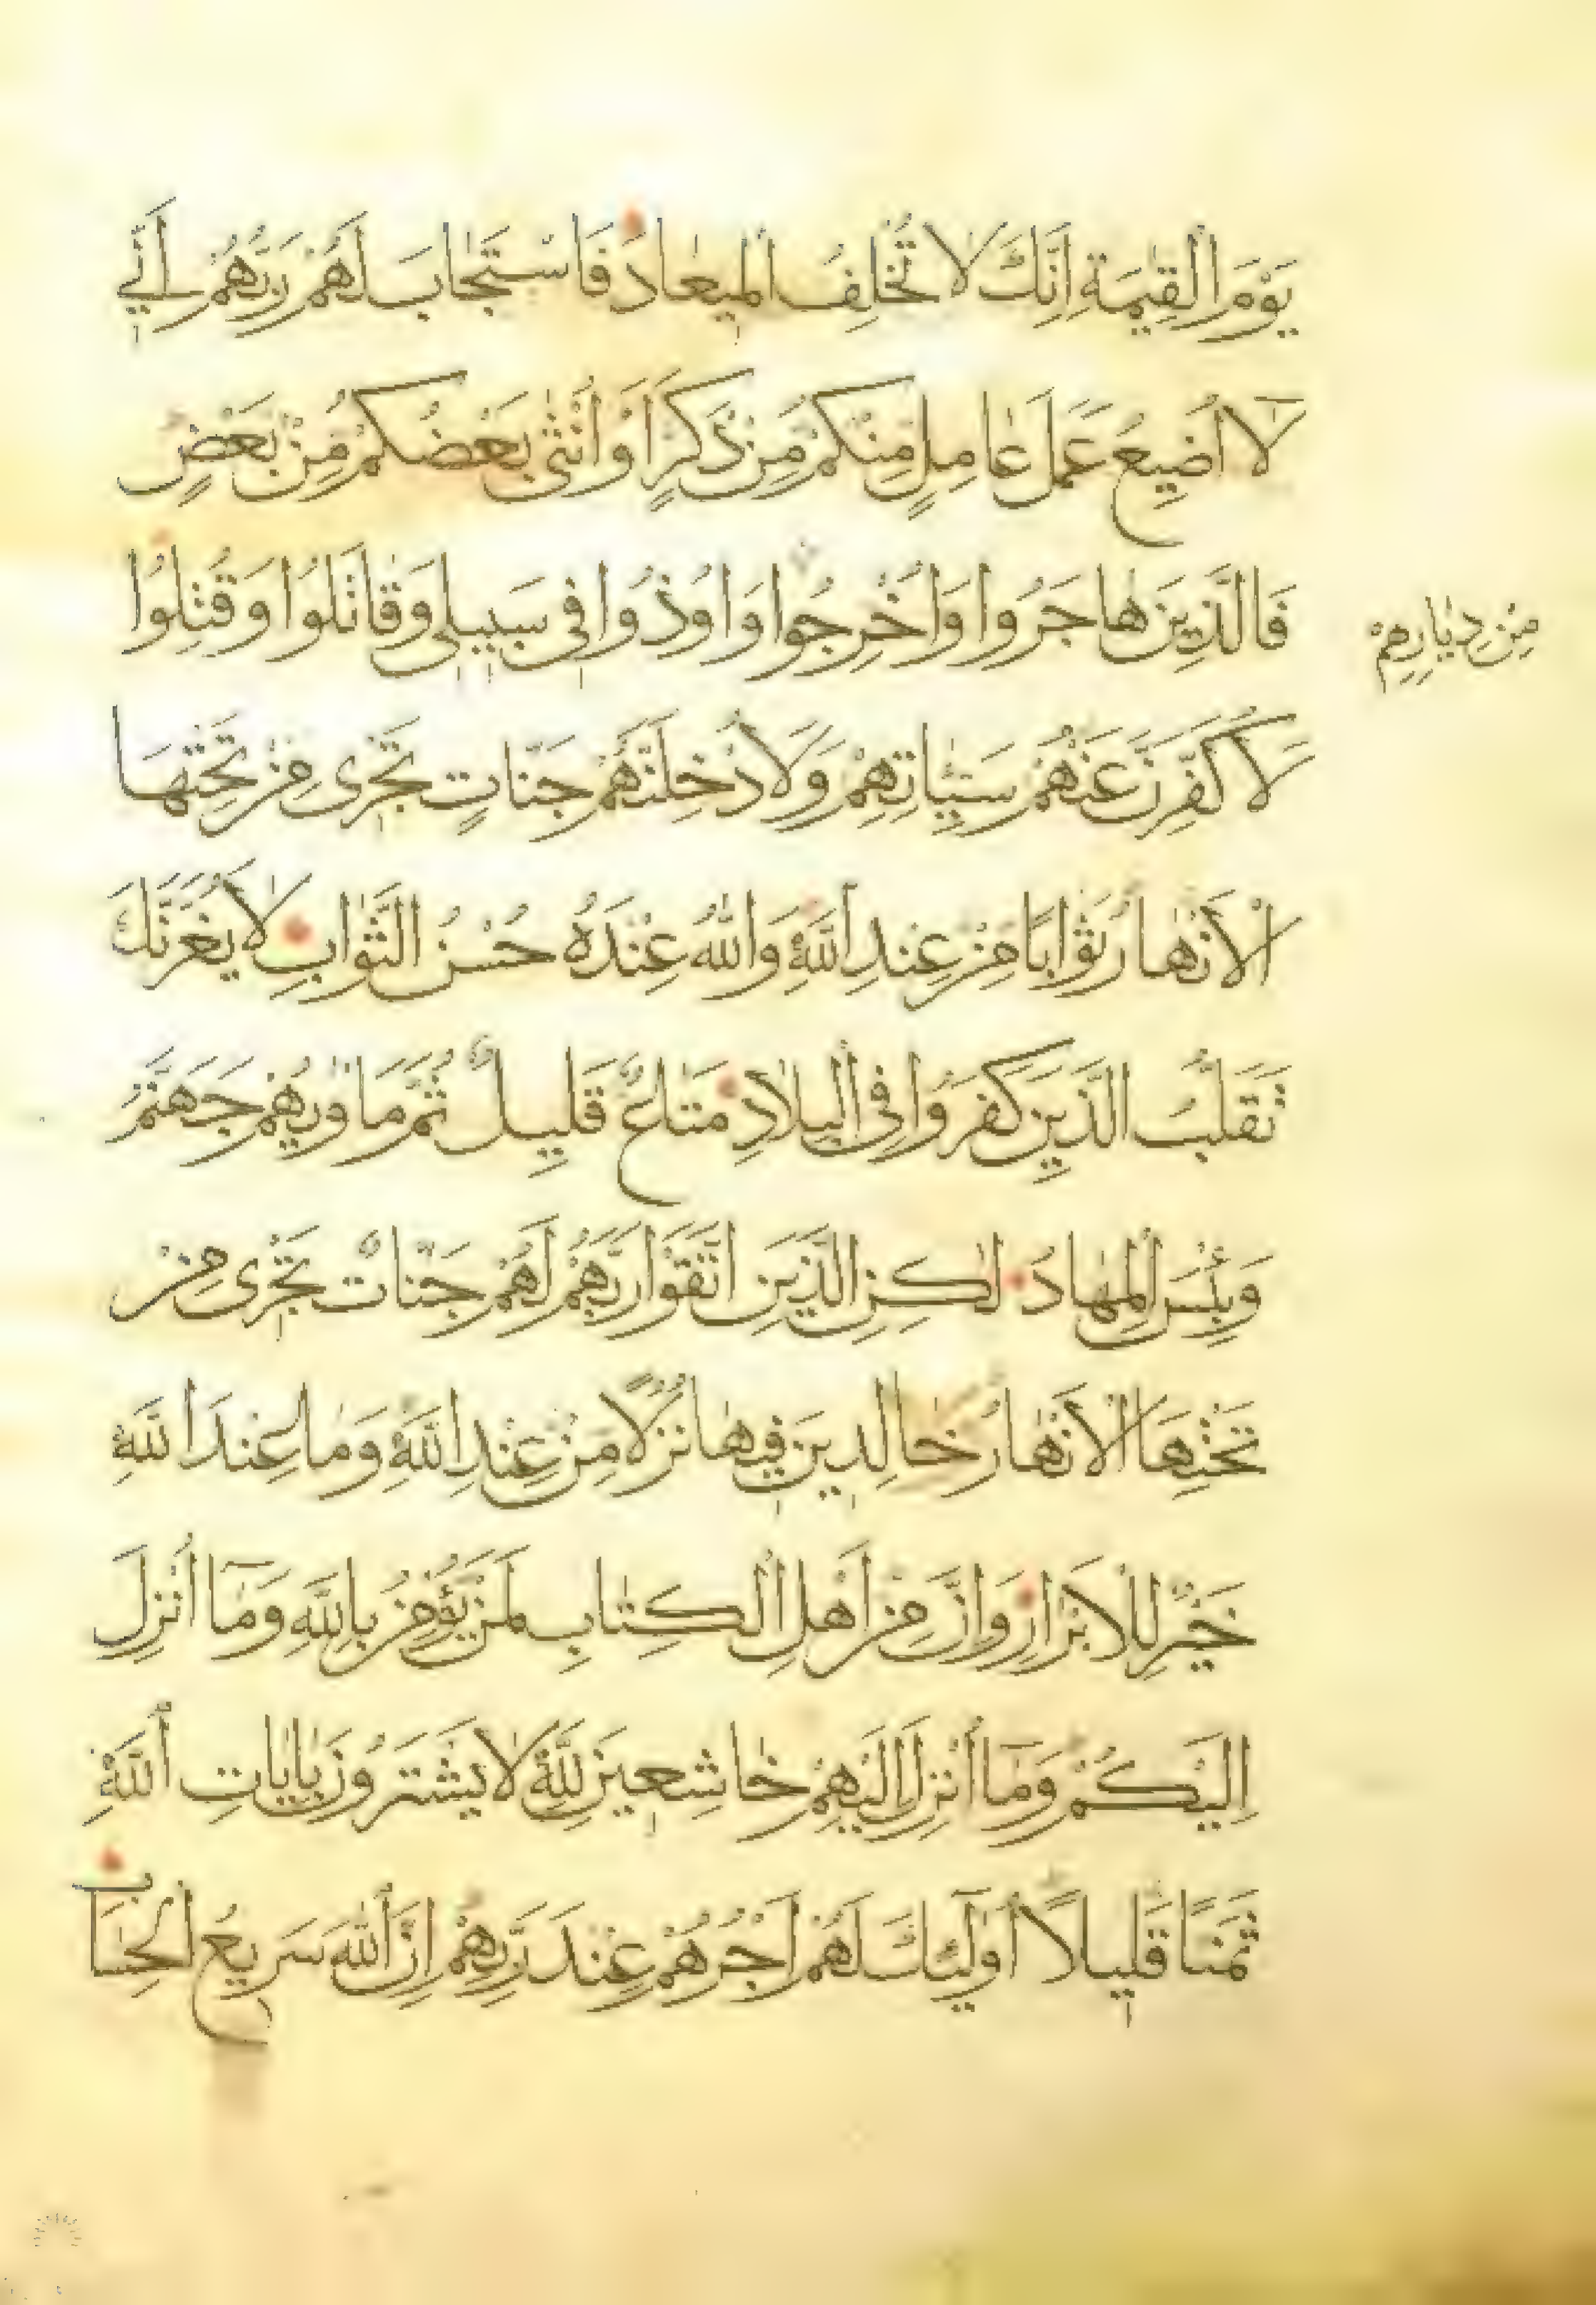 يَوْمَ الْقِيٰمَةِ اِنَّكَ لَا تُخْلِفُ الْمِيعَادَ فَاسْتَجَابَ لَهُمْ رَبُّهُمْ اَنِّي
لَا اُضِيعُ عَمَلَ عَامِلٍ مِنْكُمْ مِنْ ذَكَرٍ اَوْ اُنْثٰى بَعْضُكُمْ مِنْ بَعْضٍ
فَالَّذِينَ هَاجَرُوا وَاُخْرِجُوا وَاُوذُوا فِي سَبِيلِي وَقَاتَلُوا وَقُتِلُوا
مِنْ دِيَارِهِمْ
لَاُكَفِّرَنَّ عَنْهُمْ سَيِّاٰتِهِمْ وَلَاُدْخِلَنَّهُمْ جَنَّاتٍ تَجْرِى مِنْ تَحْتِهَا
الْاَنْهَارُ ثَوَابًا مِنْ عِنْدِ اللّٰهِ وَاللّٰهُ عِنْدَهُ حُسْنُ الثَّوَابِ لَا يَغُرَّنَّكَ
تَقَلُّبُ الَّذِينَ كَفَرُوا فِي الْبِلَادِ مَتَاعٌ قَلِيلٌ ثُمَّ مَاْوٰيهُمْ جَهَنَّمُ
وَبِئْسَ الْمِهَادُ لٰكِنِ الَّذِينَ اتَّقَوْا رَبَّهُمْ لَهُمْ جَنَّاتٌ تَجْرِى مِنْ
تَحْتِهَا الْاَنْهَارُ خَالِدِينَ فِيهَا نُزُلًا مِنْ عِنْدِ اللّٰهِ وَمَا عِنْدَ اللّٰهِ
خَيْرٌ لِلْاَبْرَارِ وَاِنَّ مِنْ اَهْلِ الْكِتَابِ لَمَنْ يُؤْمِنُ بِاللّٰهِ وَمَٓا اُنْزِلَ
اِلَيْكُمْ وَمَٓا اُنْزِلَ اِلَيْهِمْ خَاشِعِينَ لِلّٰهِ لَا يَشْتَرُونَ بِاٰيَاتِ اللّٰهِ
ثَمَنًا قَلِيلًا اُولٰٓئِكَ لَهُمْ اَجْرُهُمْ عِنْدَ رَبِّهِمْ اِنَّ اللّٰهَ سَرِيعُ الْحِسَابِ